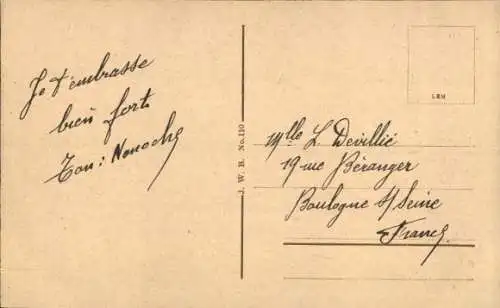 Je t'embrasse
bien fort
Ton: Nonoche
J. W. B. No. 110
LEM
Mlle L. Devillié
19 rue Béranger
Boulogne s/ Seine
France